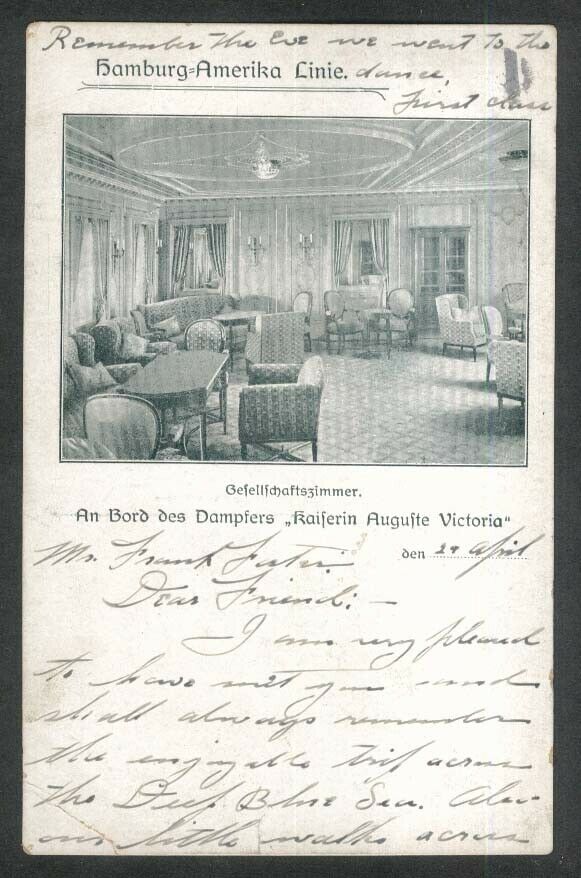 Remember the Eve we went to the
Hamburg-Amerika Linie. dance,
first class
Gesellschaftszimmer.
An Bord des Dampfers „Kaiserin Auguste Victoria"
den 29 April
Mr. Frank
Dear Friend: —
I am very pleased
to have met you and
shall always remember
the enjoyable trip across
the Deep Blue Sea. Also
our little walks across